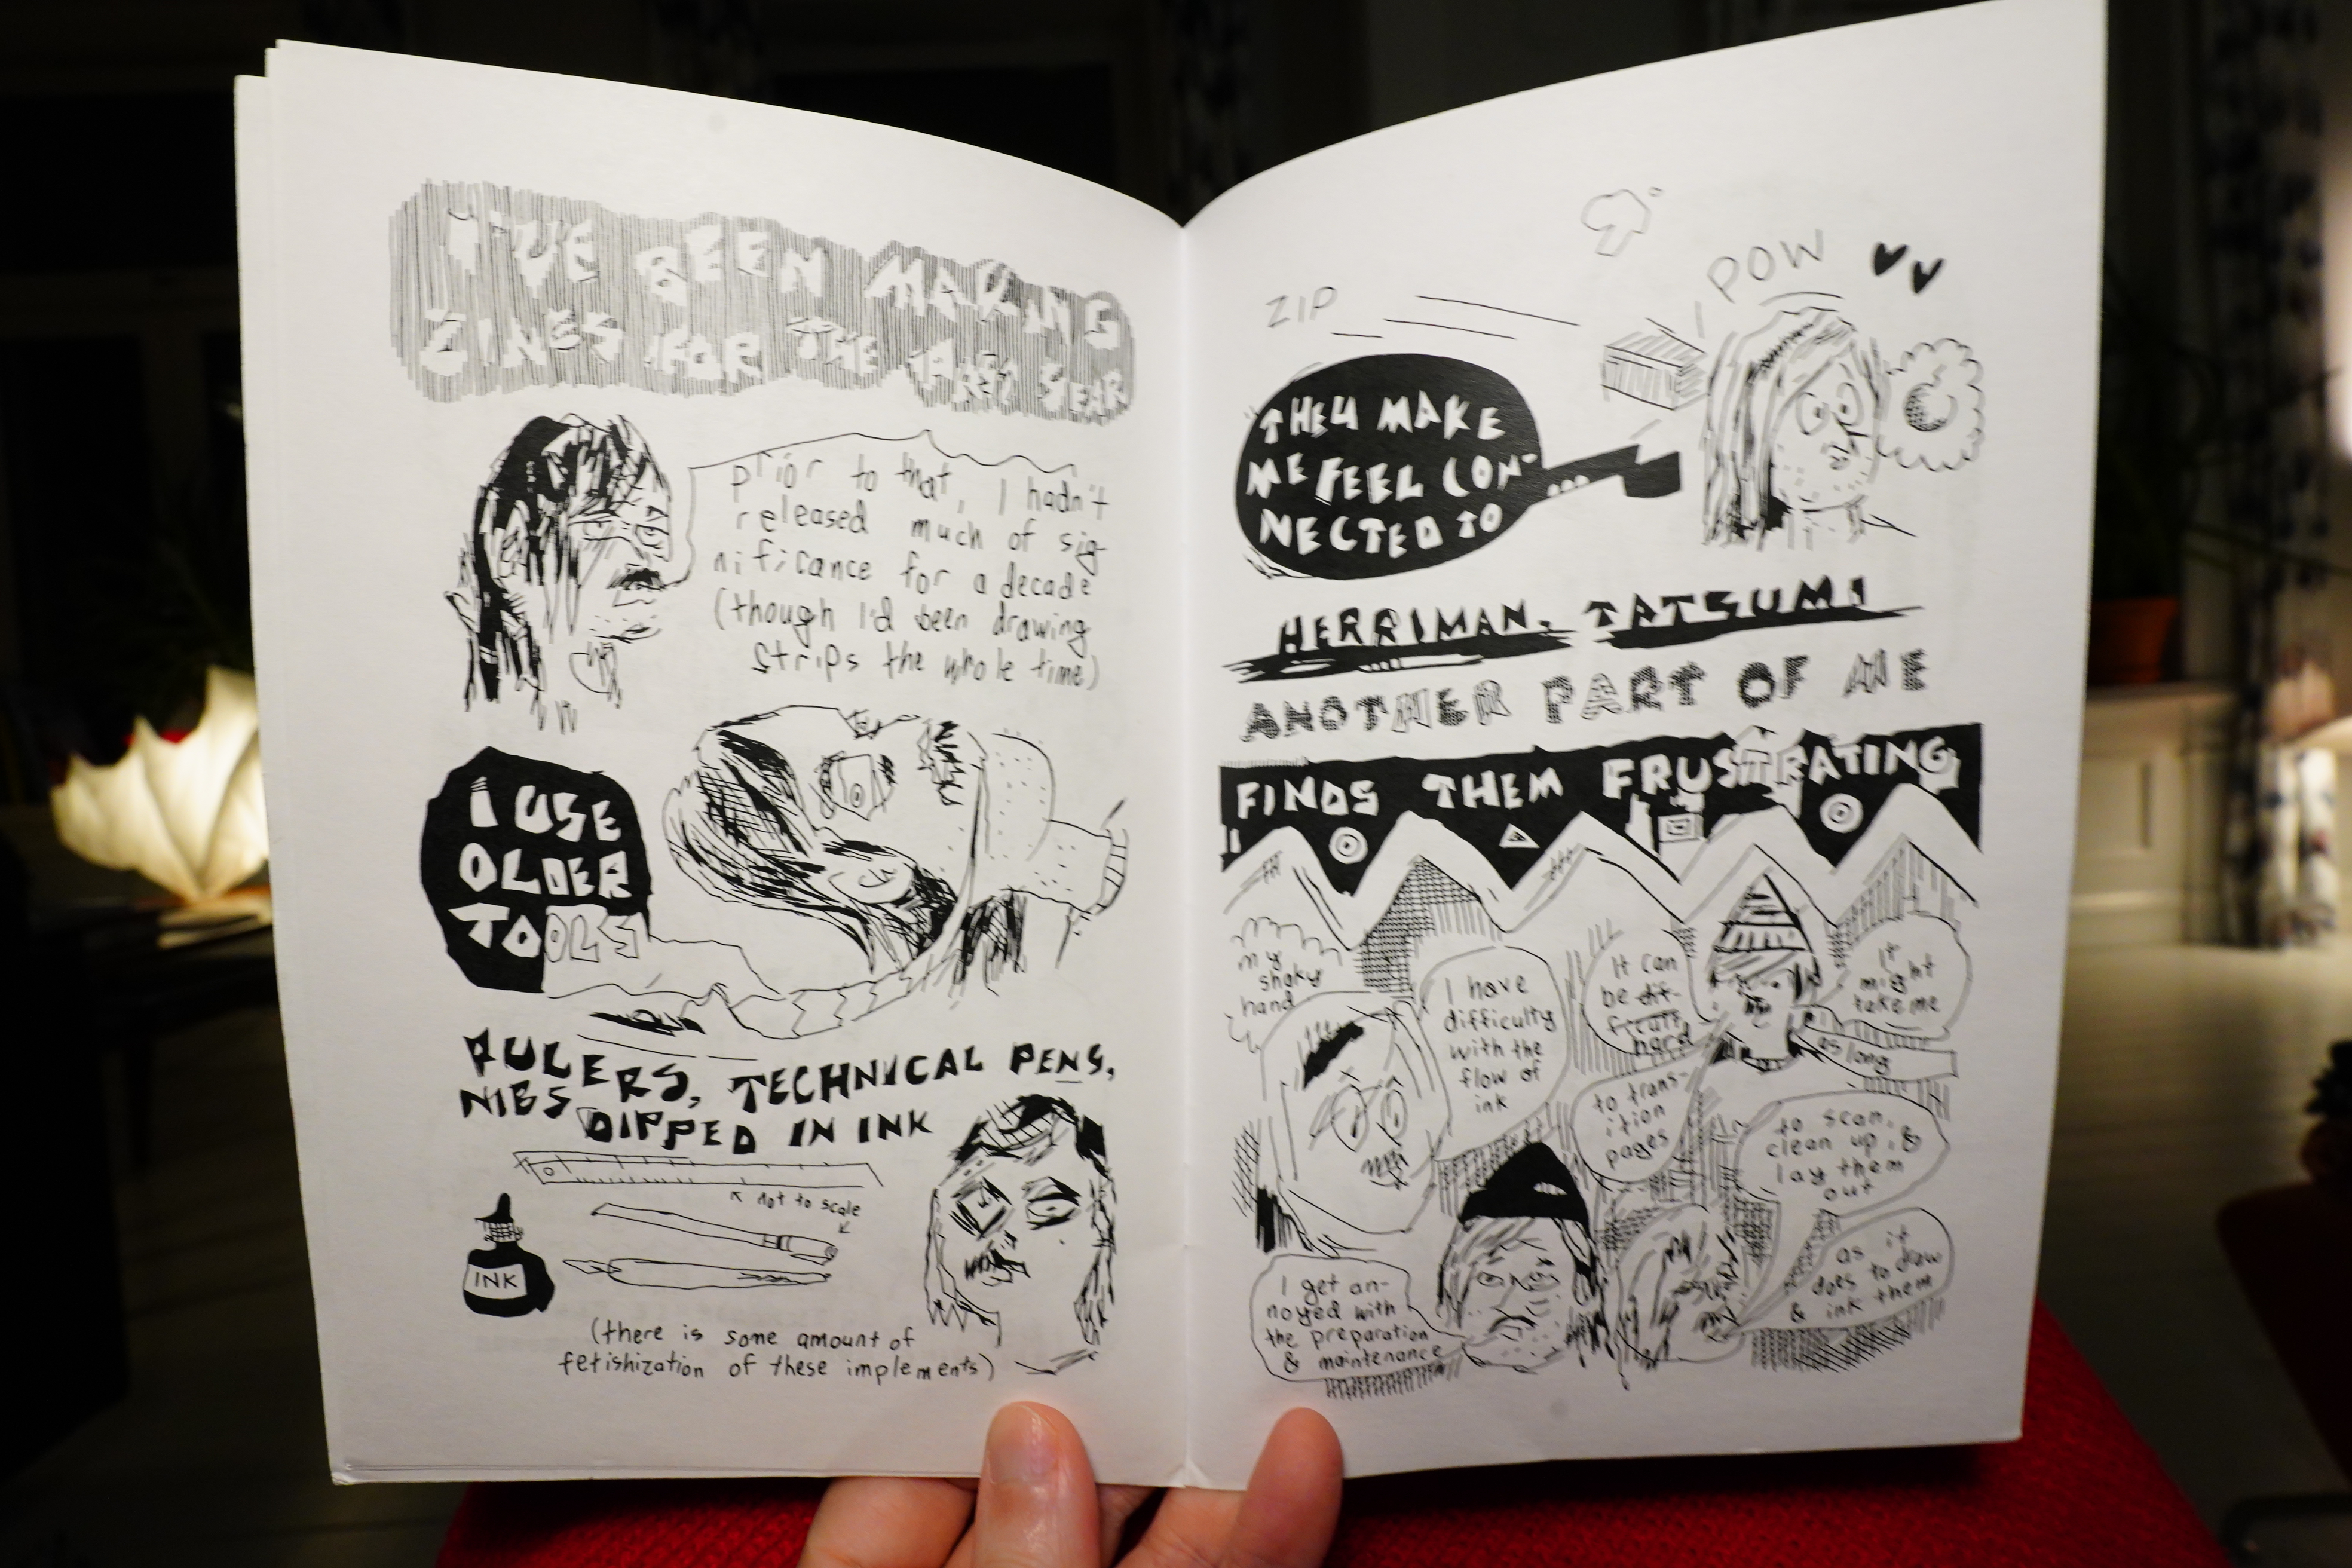 I'VE BEEN MAKING
ZINES FOR THE PAST YEAR
prior to that, I hadn't
released much of sig-
nificance for a decade
(though I'd been drawing
strips the whole time)
I USE
OLDER
TOOLS
RULERS, TECHNICAL PENS,
NIBS DIPPED IN INK
not to scale
INK
(there is some amount of
fetishization of these implements)
ZIP
POW
THEY MAKE
ME FEEL CON-
NECTED TO
HERRIMAN, TATSUMI
ANOTHER PART OF ME
FINDS THEM FRUSTRATING
my
shaky
hand
I have
difficulty
with the
flow of
ink
I get an-
noyed with
the preparation
& maintenance
It can
be dif-
ficult
hard
to trans-
ition
pages
It
might
take me
as long
to scan,
clean up, &
lay them
out
as it
does to draw
& ink them